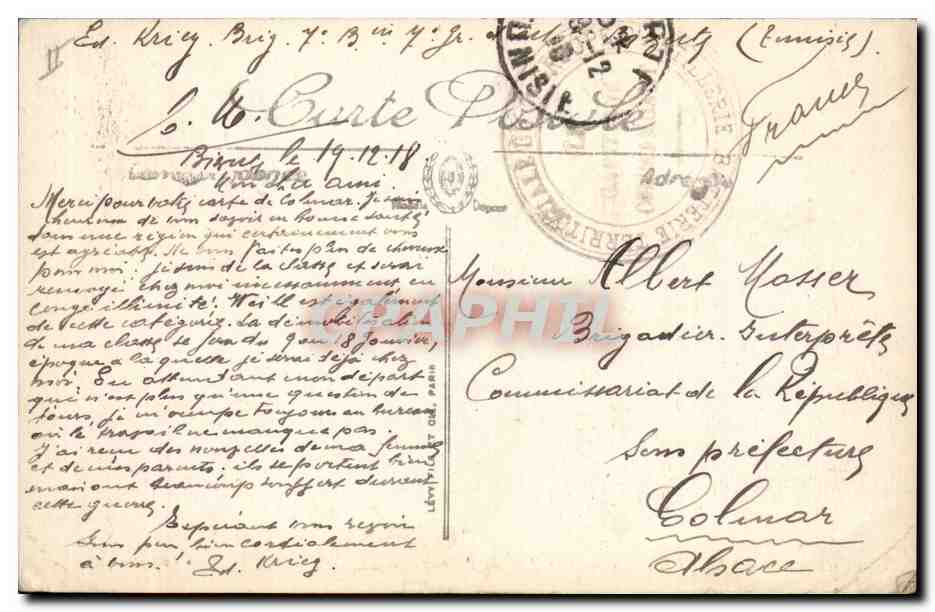 II
Ed. Krieg, Brig. 7e Bie 7e Gr. (Tunisie)
C. M. Carte Postale
France
le 19.12.18
Mon cher ami.
Merci pour votre carte de Colmar. Je suis
heureux de vous savoir en bonne santé
dans une région qui certainement vous
est agréable. Ne vous faites plus de cheveux
pour moi. Je suis de la classe et serai
renvoyé chez moi incessamment en
congé illimité. Weill est également
de cette catégorie. La démobilisation
de ma classe se fera du 9 au 18 Janvier,
époque à laquelle je serai déjà chez
moi. En attendant mon départ
qui n'est plus qu'une question de
jours, je m'occupe toujours au bureau
où le travail ne manque pas.
J'ai reçu des nouvelles de ma femme
et de mes parents: ils se portent bien
mais ont beaucoup souffert durant
cette guerre.
Espérant vous revoir
sous peu, bien cordialement
à vous. Ed. Krieg
LÉVY FILS ET CIE, PARIS
Monsieur Albert Mosser
Brigadier Interprète
Commissariat de la République
Sous préfecture
Colmar
Alsace
CRAPHIL